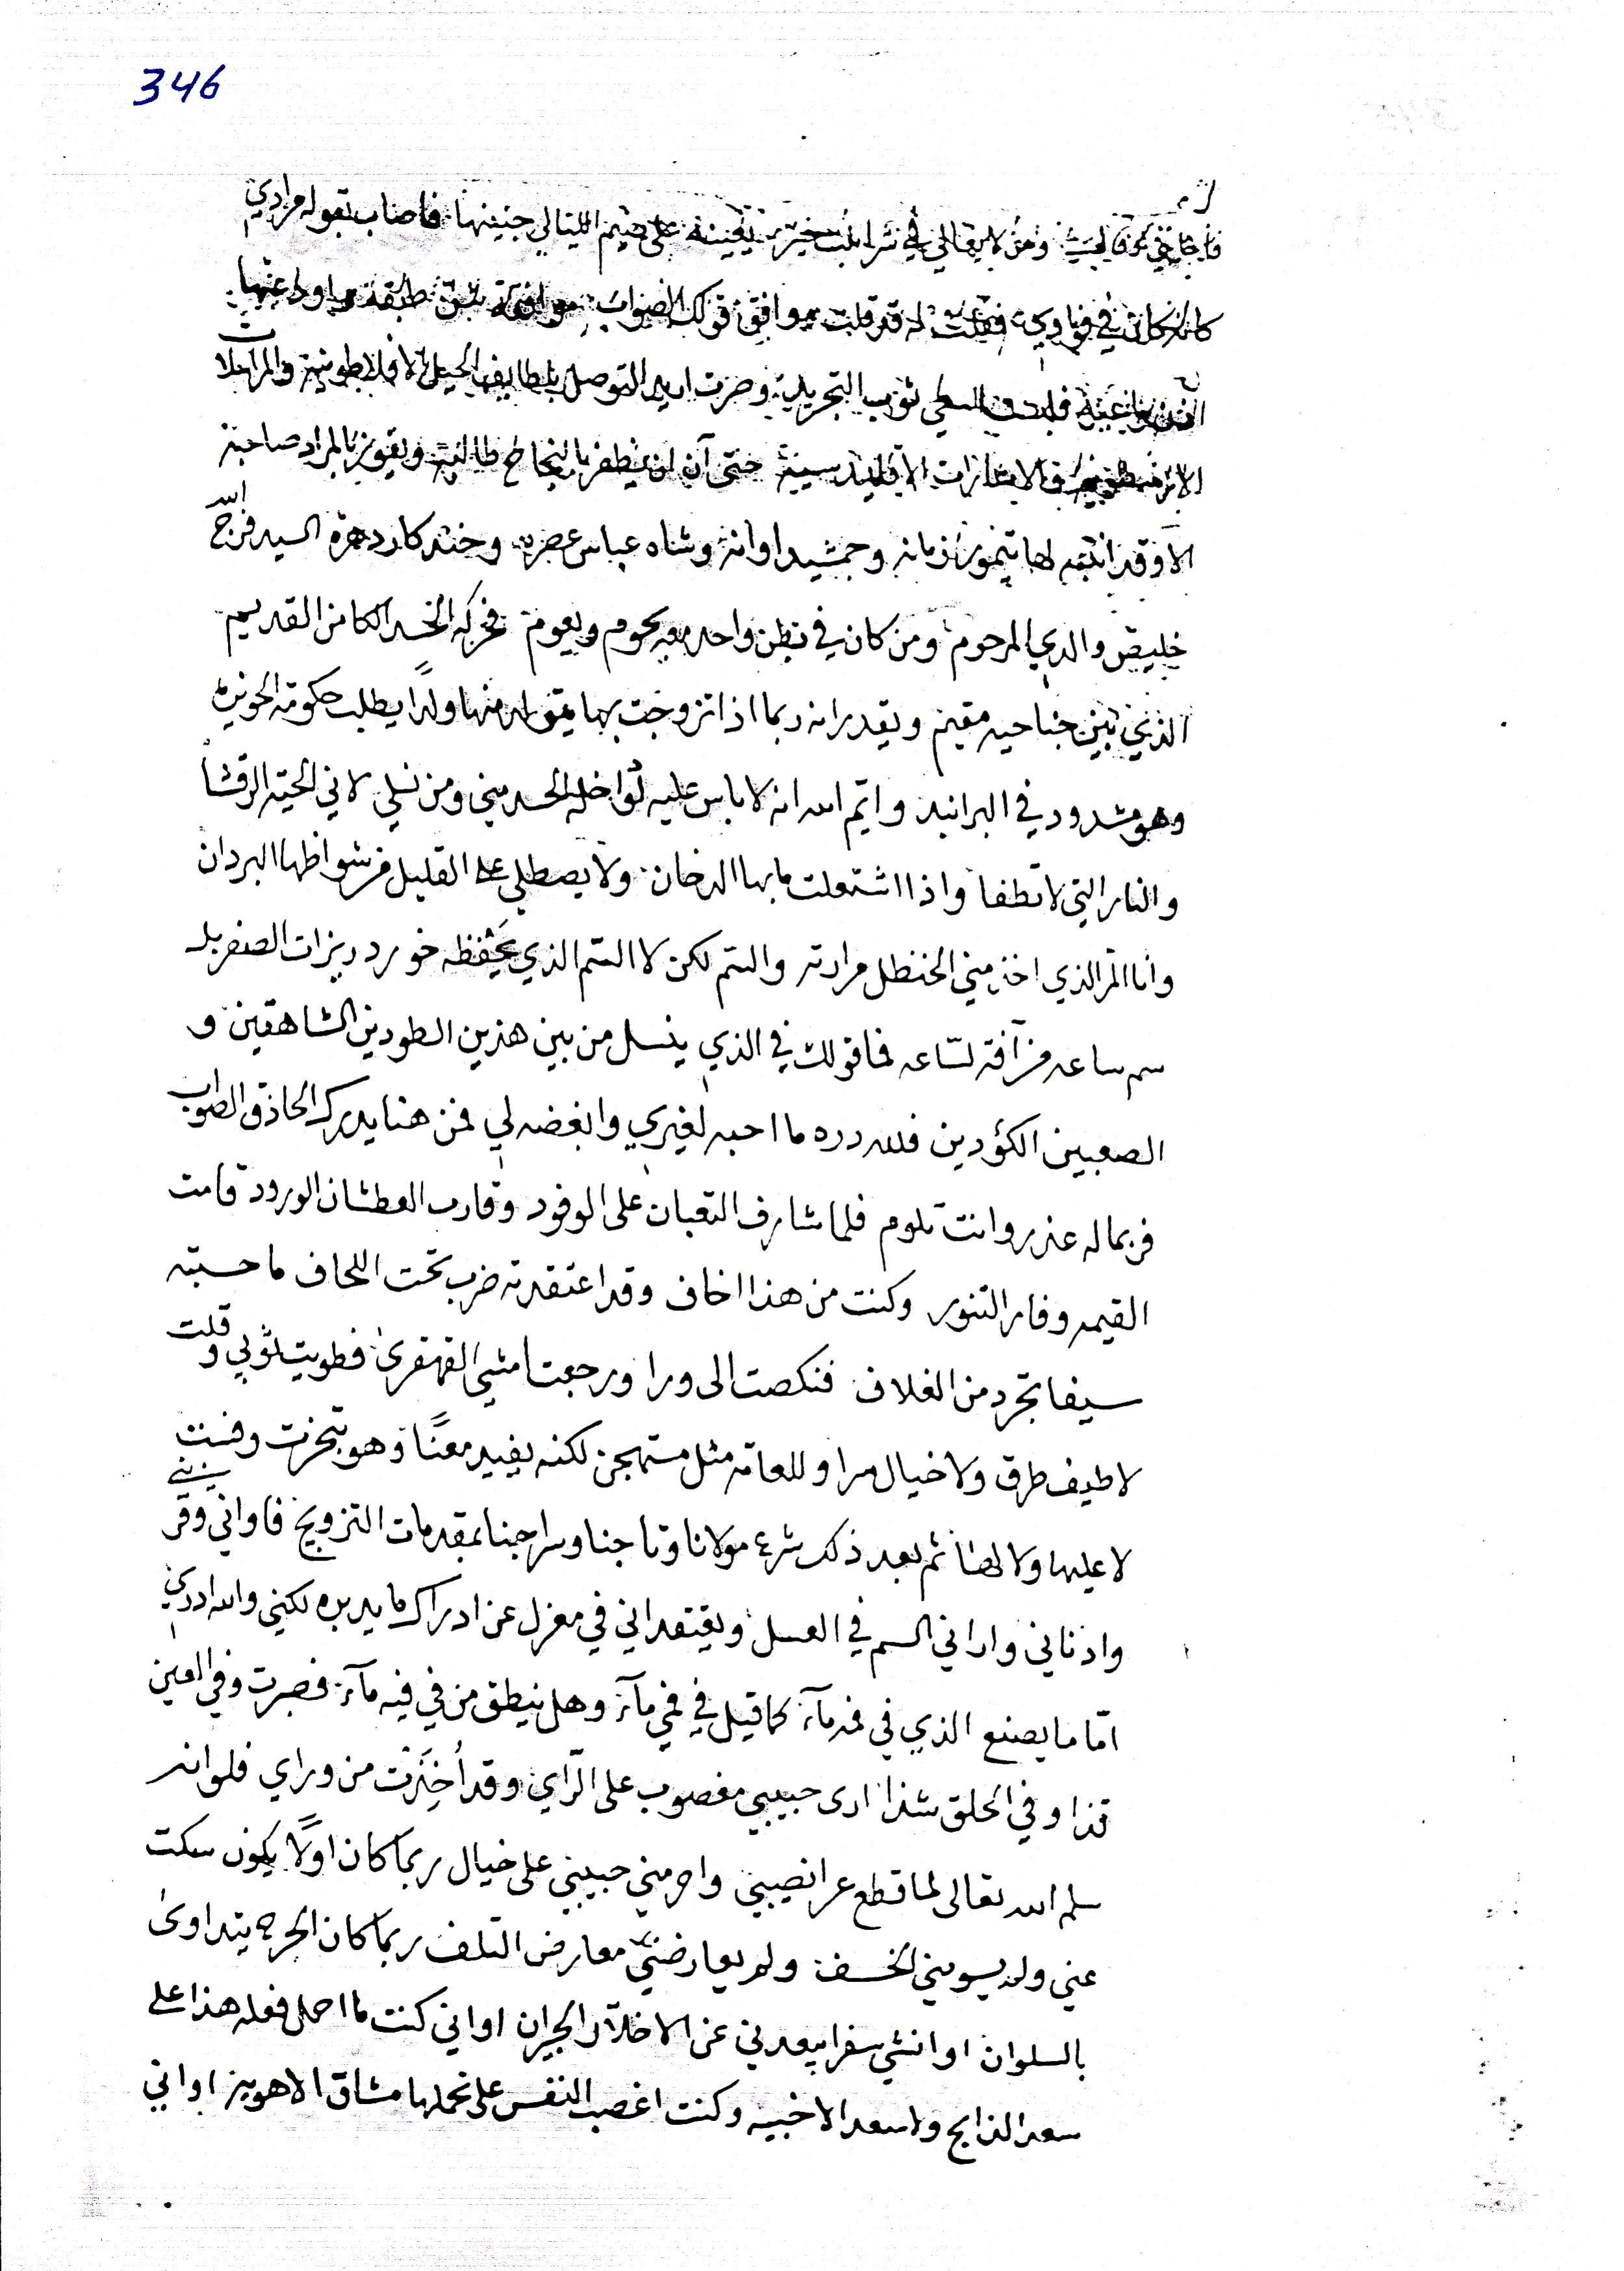 346
فاجابني ومن لا يغالي في شرا يعينه على ضيم الليالي جنينها فاصاب بقوله مرادي
كانه كان في فوادي فقلت له قد قلت موافق قولك الصواب موافقة شن طبقة
فلبست ثوب التجريد وصرت اريد التوصل بلطايف الحيل الافلاطونية والمراسلات
الاقليدسية حتى آن ان يظفر بالنجاح طالبه ويفوز بالمراد صاحبه
الا وقد انتبه لها تيمور زمانه وجمشيد اوانه وشاه عباس عصره وخندكار دهره السيد فرج الله
خليص والدي المرحوم ومن كان في بطن واحد معه يحوم ويعوم فحركه الحسد الكامن القديم
الذي بين جناحيه مقيم ويقدر انه ربما اذا تزوجت بها يتولد منها ولدًا يطلب حكومة الحويزة
وهو مشدود في البرانيد وايم الله انه لا باس عليه لو اخذه الحسد مني ومن نسلي لاني الحية الرقشا
والنار التي لا تطفا واذا اشتعلت ما بها الدخان ولا يصطلي على القليل من شواظها البردان
وانا المر الذي اخذ مني الحنظل مرارته والسم لكن لا السم الذي يحفظه خورد ريزات الصفر بل
سم ساعه من آفة لساعه فما قولك في الذي ينسل من بين هذين الطودين الشاهقين و
الصعبين الكؤدين فلله دره ما احبه لغيري وابغضه لي فمن هنا يدرك الحاذق الصواب
فربما له عذر وانت تلوم فلما شارف التعبان على الوفود وقارب العطشان الورود قامت
القيمه وفار التنور وكنت من هذا اخاف وقد اعتقدته ضرب تحت اللحاف ما حسبته
سيفا تجرد من الغلاف فنكصت الى ورا ورجعت امشي القهقرى فطويت ثوبي وقلت
لا طيف طرق ولا خيال سرا وللعامة مثل مستهجن لكنه يفيد معنًا وهو تبخرت وفست
لا عليها ولا لها ثم بعد ذلك شرع مولانا وتاجنا وسراجنا بمقدمات التزويج فاواني وقربني
وادناني واراني السم في العسل ويعتقد اني في معزل عن ادراك ما يدبره لكني والله ادري
امّا ما يصنع الذي في فمه مآء كما قيل في فمي مآء وهل ينطق من في فيه مآء فصبرت وفي العين
قذا وفي الحلق شذا ارى حبيبي مغصوب على الرّاي وقد أُخِذَت من وراي فلو انه
سلم الله تعالى لما قطع عرا نصيبي واحرمني حبيبي على خيال ربما كان اولا يكون سكت
عني ولم يسومني الخسف ولم يعارضني معارض التلف ربما كان الجرح يتداوى
بالسلوان او انشي سفرا يبعدني عن الاخلآء والجيران او اني كنت ما احمل فعله هذا على
سعد الذابح ولا سعد الاخبيه وكنت اغصب النفس على تحملها مشاق الاهويز او اني